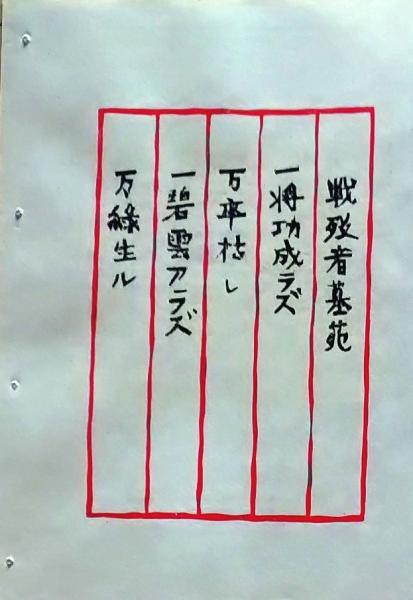 戦歿者墓苑
一将功成ラズ
万卒枯レ
一碧雲アラズ
万緑生ル